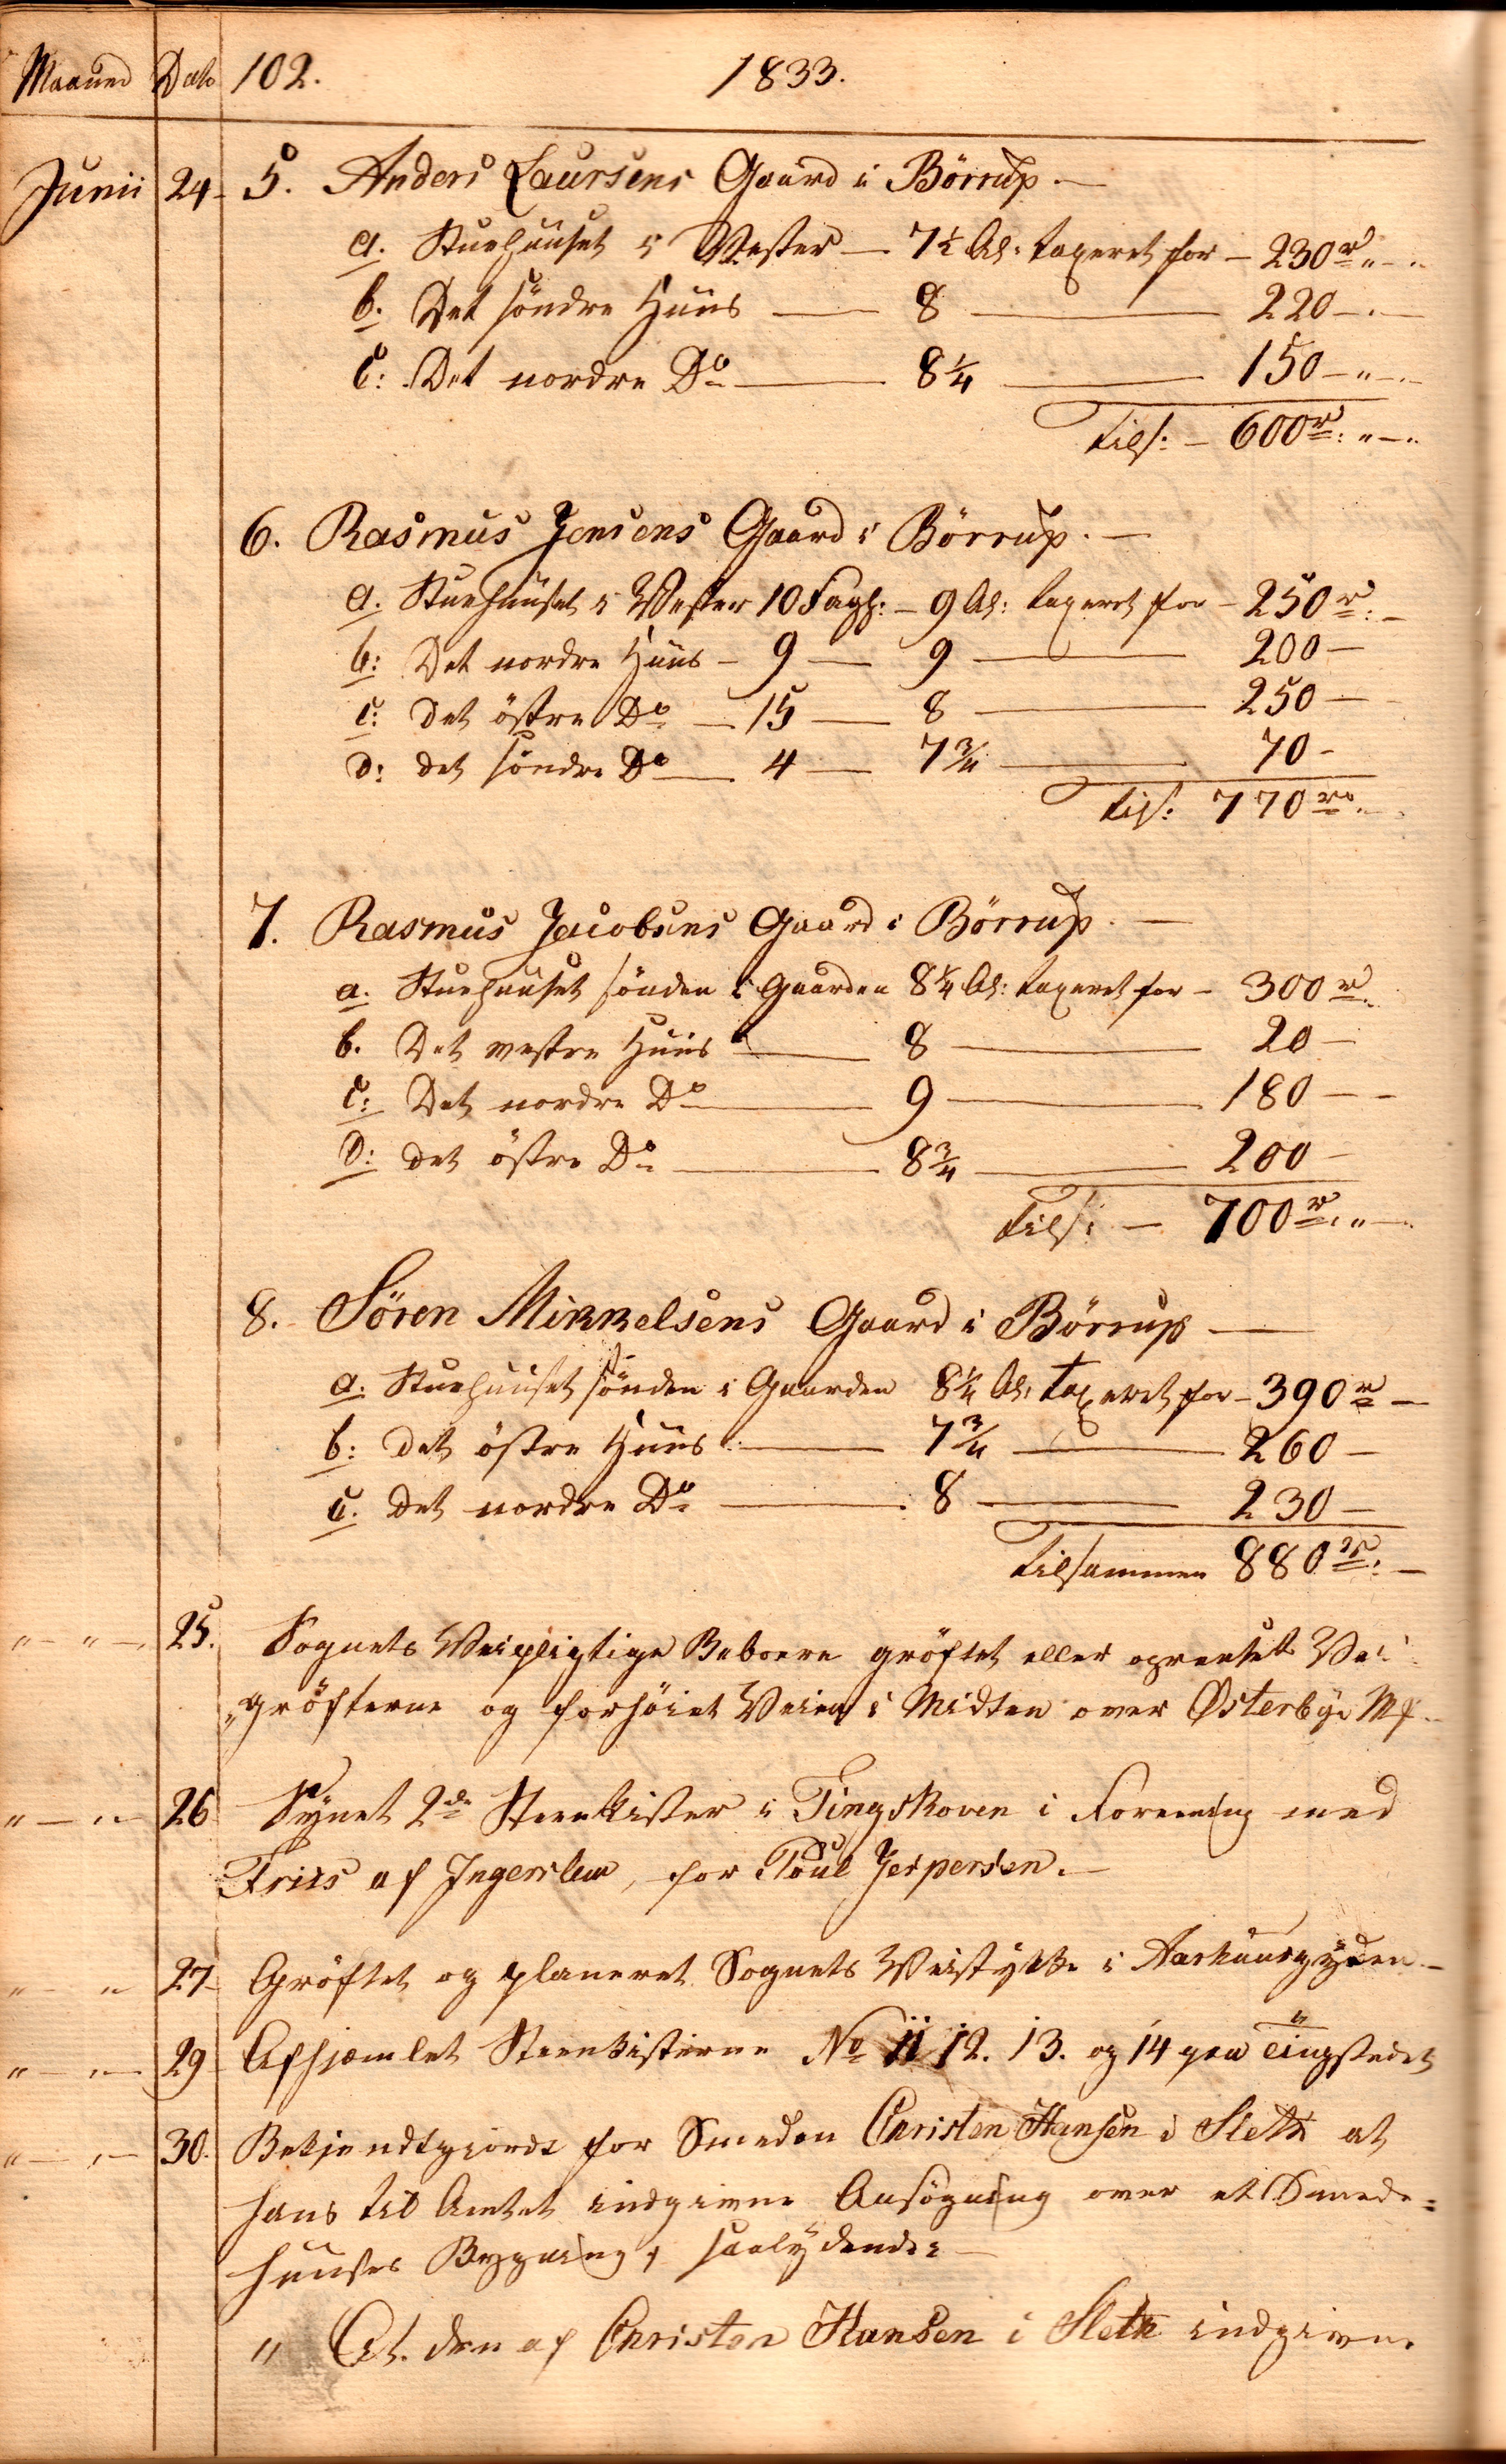 Maaned Dato 102. 1833.
Junii 24. 5. Anders Laursens Gaard i Börrup. —
a. Stuehuuset i Vester — 7½ Al: taxeret for — 230 rd „ — „
b. Det söndre Huus — 8 — 220 — . —
c: Det nordre Do — 8¼ — 150 — „ — „
tils: — 600 rd: „ — „
6. Rasmus Jensens Gaard i Börrup. —
a. Stuehuuset i Vester 10 Fagh: — 9 Al: taxeret for — 250 rd: —
b: Det nordre Huus — 9 — 9 — 200 —
c: det östre Do — 15 — 8 — 250 —
d: det söndre Do — 4 — 7¾ — 70 —
tils: 770 rd. —
7. Rasmus Jacobsens Gaard i Börrup. —
a. Stuehuuset sönden i Gaarden 8¼ Al: taxeret for — 300 rd.
b. Det vestre Huus — 8 — 20 —
c: Det nordre Do — 9 — 180 — —
D: det östre Do — 8¾ — 200 —
tils: — 700 rd: „ —
8. Sören Mikkelsens Gaard i Börrup —
a. Stuehuuset sönden i Gaarden 8¼ Al: taxeret for — 390 rd —
b: det östre Huus — 7¾ — 260 —
c. det nordre Do — 8 — 230 —
tilsammen 880 rd: —
„ — „ — 25. Sognets Veipligtige Beboere gröftet eller oprenset Vei
„gröfterne og forhöiet Veien i Midten over Österbye M
„ — „ — 26 Synet 2de Steenkister i Tingskoven i Forening med
Friis af Ingerslev, for Poul Jespersen. —
„ — „ 27 Gröftet og planeret Sognets Veistykke i Aarhuusgyden —
„ — „ — 29 Afhjemlet Steenkisterne No 11 12. 13. og 14 paa Tingstedet
„ — „ — 30. Bekjendtgiordt for Smeden Christen Hansen i Sleth at
hans til Amtet indgivne Ansögning over et Smede=
huuses Bygning, saalydende:
„ At den af Christen Hansen i Sleth indgivne